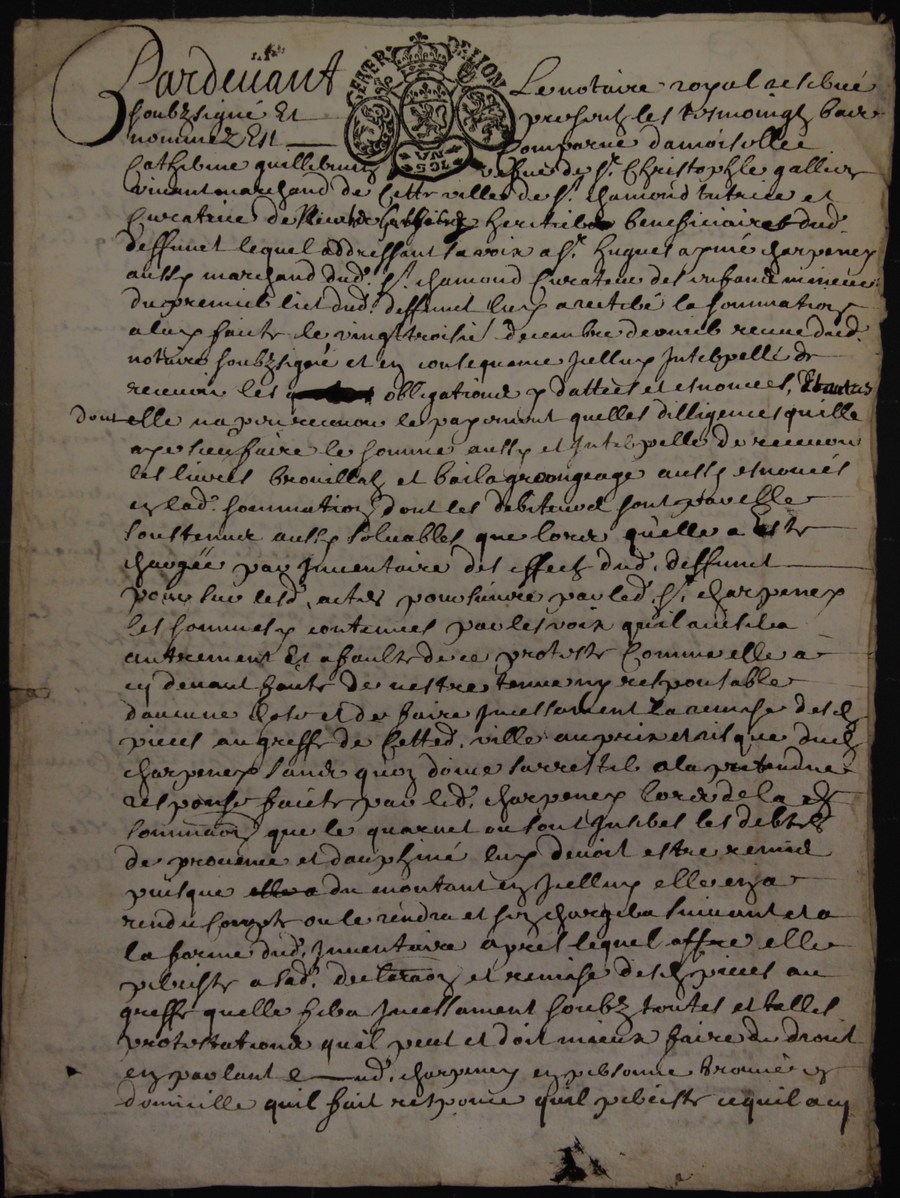 Pardevant Le notaire royal reservé
soubzsigné Et presents les tesmoingz bas
nommez Est Comparue damoiselle
Catherine guillermin vefve de Sr. Christophle gallier
vivant marchand de Cette ville de St. chamond tutrice et
Curatrice de heritiere beneficiaire dud.
deffunct lequel addressant sa voix a Sr. hugues aymé charpeney
aussy marchand dud. St. chamond Curateur des enfans mineurs
du premier lict dud. deffunct luy a reiteré la sommation
a luy faitte le vingt troisie decembre dernier receue dud.
notaire soubzsigné et en consequence Icelluy Interpellé de
recevoir les obligations y dattees et enoncees, Et autres
dont elle na peu recevoir le payement quelles dilligences quelle
aye sceu faire le somme aussy et Interpelle de recevoir
les livres brouillatz et bail a grangeage aussy enoncés
en lad. sommation dont les debiteurs sont par elle
soustenus aussy soluables que lors quelle a Esté
chargée par Inventaire des effectz dud. deffunct
pour sur lesd. actes poursuivre par led. Sr. charpeney
les sommes y contenues par les voix quil avisera
autrement Et a faulte de ce proteste Comme elle a
cy devant faict de nestre tenue ny responsable
daucune chose et de faire Incessament la remise desd.
pieces au greffe de Cetted. ville au prix et risque dud.
charpeney sans quoy doive sarrester a la pretendue
response faicte par led. charpeney lors de la d.
sommaon que le quarnet ou sont Inserés les debtes
de provence et dauphiné luy devoit estre remis
puisque du montant en Icelluy elle en a
rendu compte ou le rendra et sen chargera suivant et a
la forme dud. Inventaire apres lequel offre elle
persiste a sad. declaraon et remise desd. pieces au
greffe quelle fera Incessament soubz toutes et telles
protestations quil peut et doit mieux faire de droit
en parlant e ud. charpeney en personne trouvé en
domicille quil fait responce quil persiste a ce quil a cy
GENER DE LION